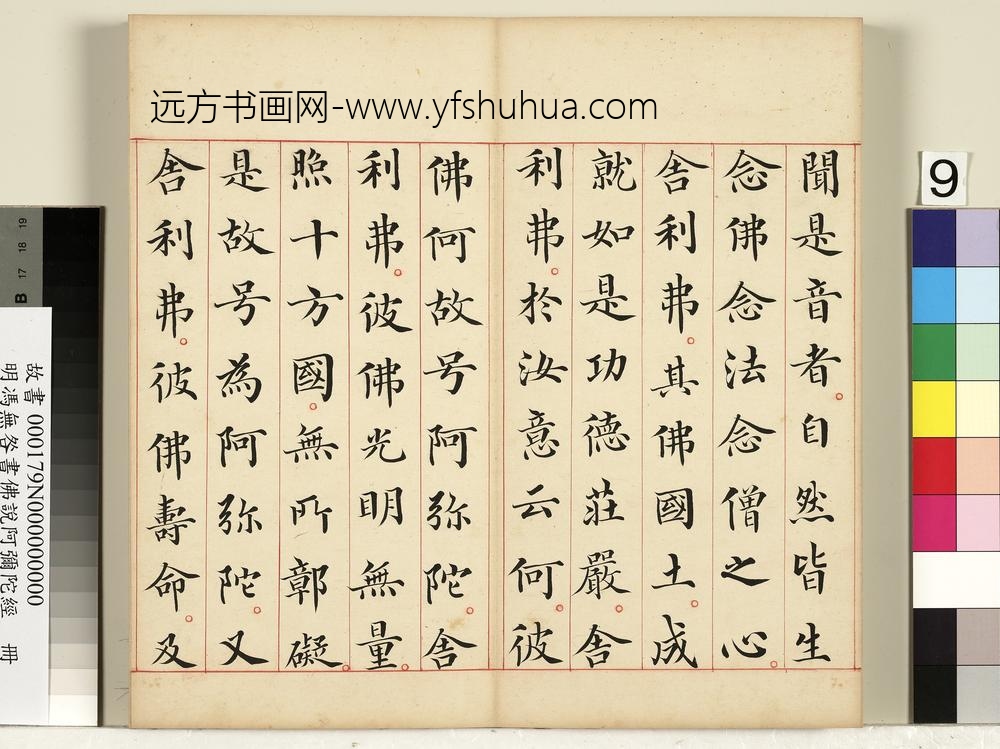 远方书画网-www.yfshuhua.com
聞是音者自然皆生
念佛念法念僧之心
舎利弗其佛國土成
就如是功德莊嚴舎
利弗於汝意云何彼
佛何故号阿弥陀舎
利弗彼佛光明無量
照十方國無所鄣礙
是故号為阿弥陀又
舎利弗彼佛壽命及
9
19
18
17
B
故書 000179N000000000
明馮無咎書佛說阿彌陀經 冊